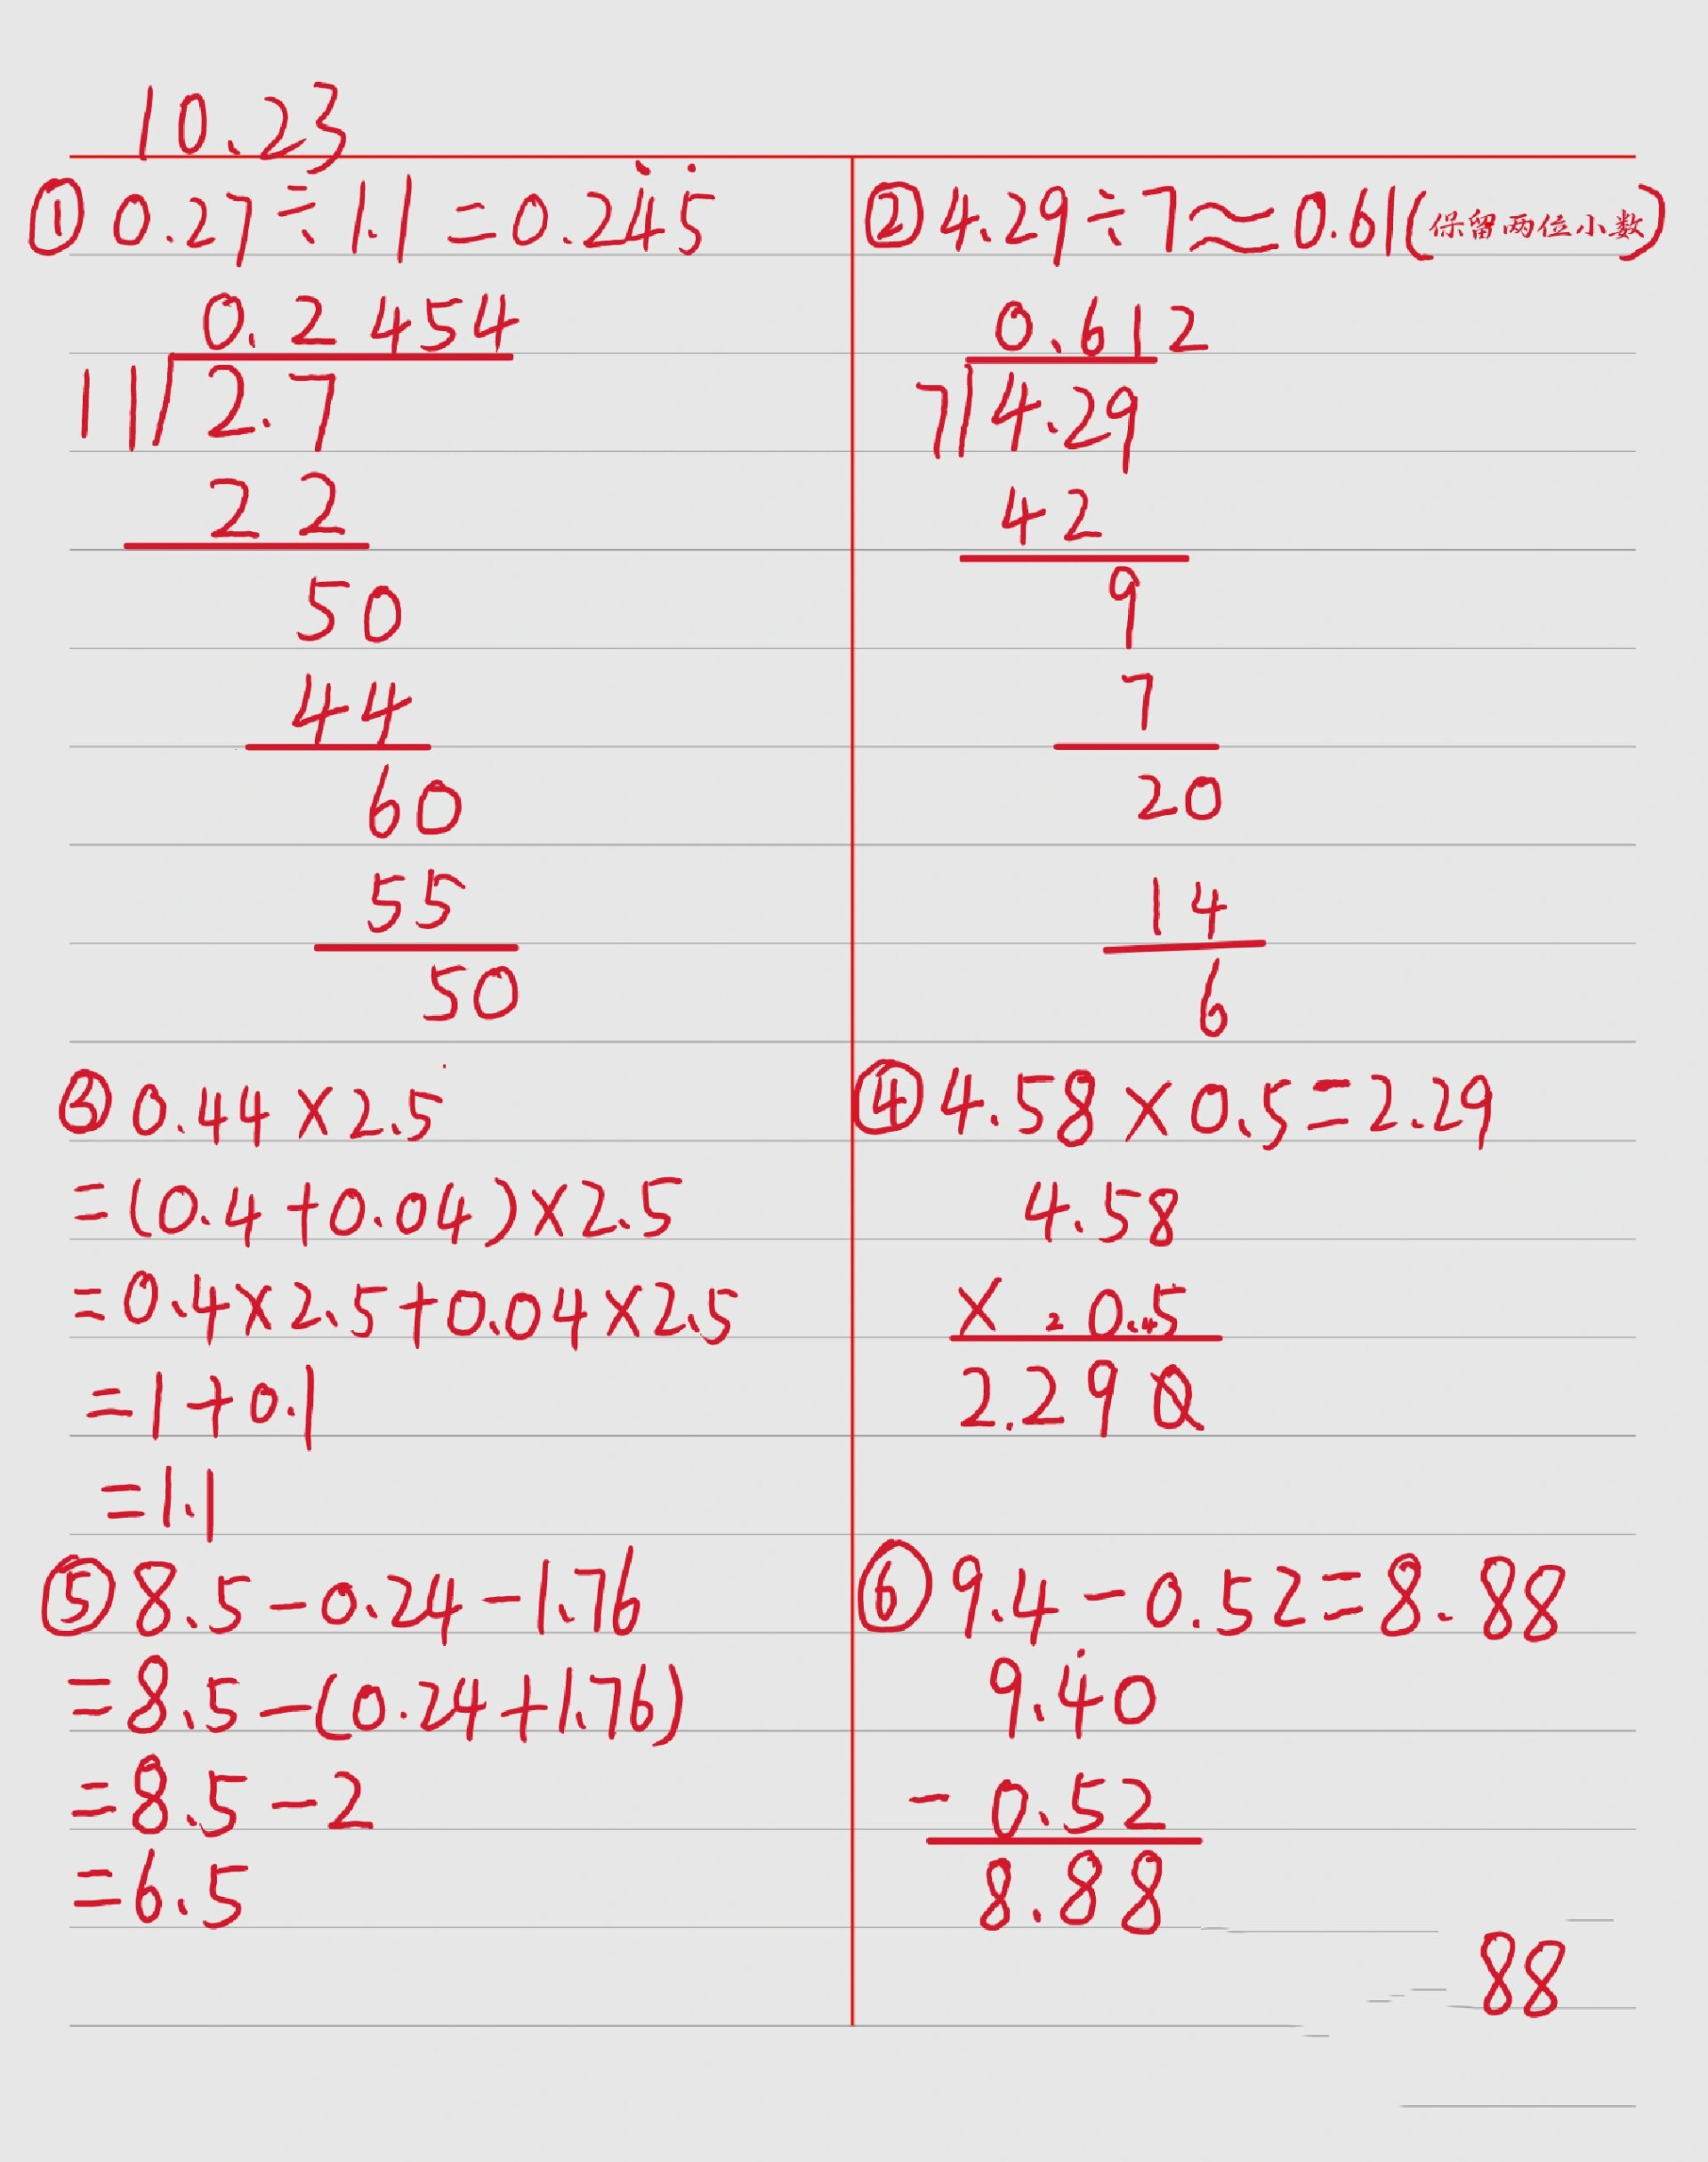 10.23
① 0.27÷1.1=0.24̇5̇
0.2454
11 2.7
22
50
44
60
55
50
② 4.29÷7≈0.61(保留两位小数)
0.612
7 4.29
42
9
7
20
14
6
③ 0.44×2.5
=(0.4+0.04)×2.5
=0.4×2.5+0.04×2.5
=1+0.1
=1.1
④ 4.58×0.5=2.29
4.58
× 2 0.4 5
2.290
⑤ 8.5-0.24-1.76
=8.5-(0.24+1.76)
=8.5-2
=6.5
⑥ 9.4-0.52=8.88
9.4̇0
-0.52
8.88
88